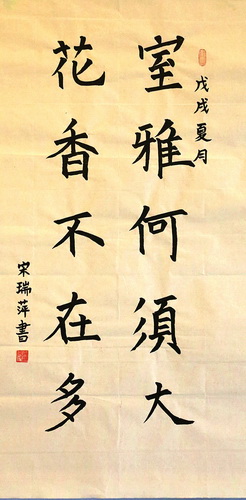 戊戌夏月
室雅何須大
花香不在多
宋瑞萍書